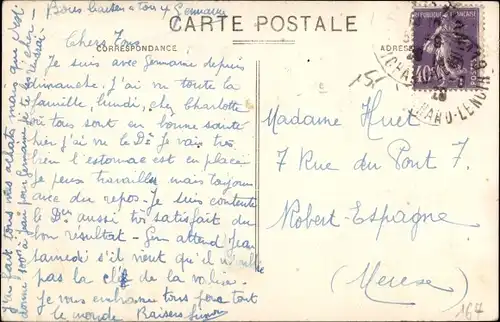 Bons baisers à tous
Germaine
CARTE POSTALE
CORRESPONDANCE
ADRESSE
Chers Tous
Je suis avec Germaine depuis
dimanche, j'ai vu toute la
famille, lundi, chez Charlotte
où tous sont en bonne santé
hier j'ai vu le Dr je vais très
bien l'estomac est en place
je peux travailler mais toujours
avec du repos. Je suis contente
le Dr aussi très satisfait du
bon résultat - attend Jean
samedi s'il veut qu'il n'oublie
pas la clef de la valise.
Je vous embrasse tous fort tout
le monde Baisers Simone
J'ai fait tous mes achats mais que c'est
cher
donné 500f à Jean pour Germaine je te les rendrai
Madame Huet
7 Rue du Pont 7.
Robert-Espagne
(Meuse)
167
RÉPUBLIQUE FRANÇAISE
40c